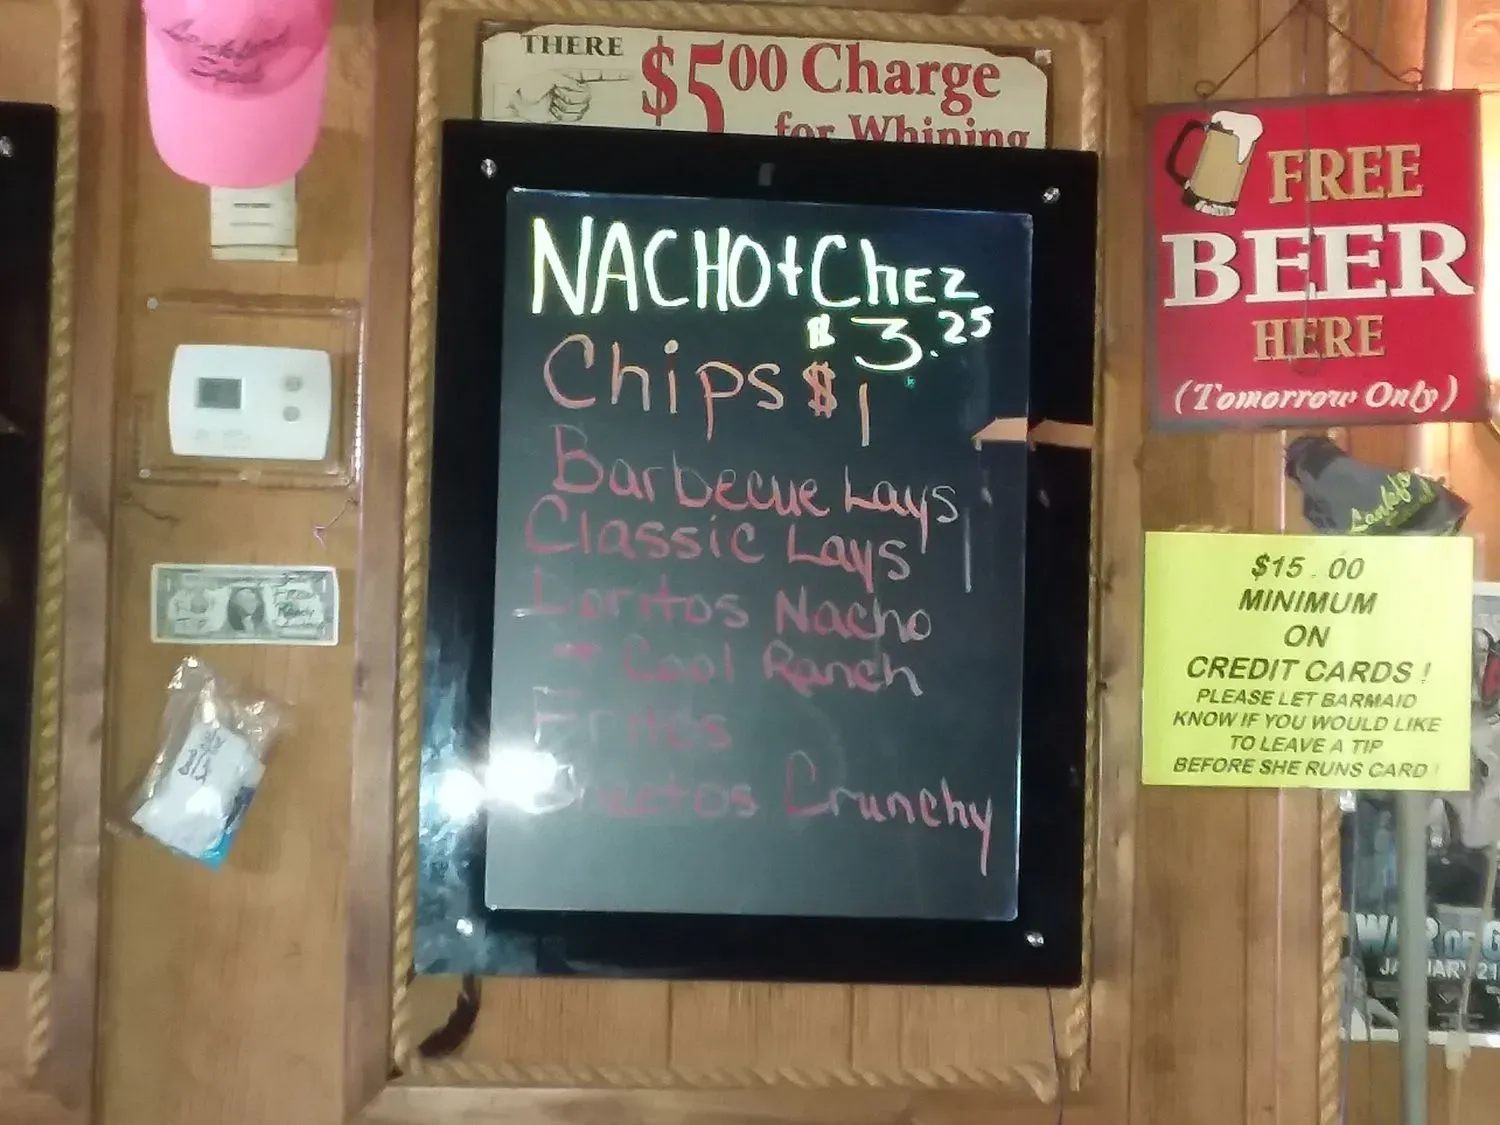 THERE
$5.00 Charge
for Whining
NACHO + ChEz
$3.25
Chips $1
Barbecue Lays
Classic Lays
Doritos Nacho
+ Cool Ranch
Fritos
Cheetos Crunchy
FREE
BEER
HERE
(Tomorrow Only)
$15.00
MINIMUM
ON
CREDIT CARDS !
PLEASE LET BARMAID
KNOW IF YOU WOULD LIKE
TO LEAVE A TIP
BEFORE SHE RUNS CARD !
TIP
From
Randy
WAR OF G
JANUARY 21